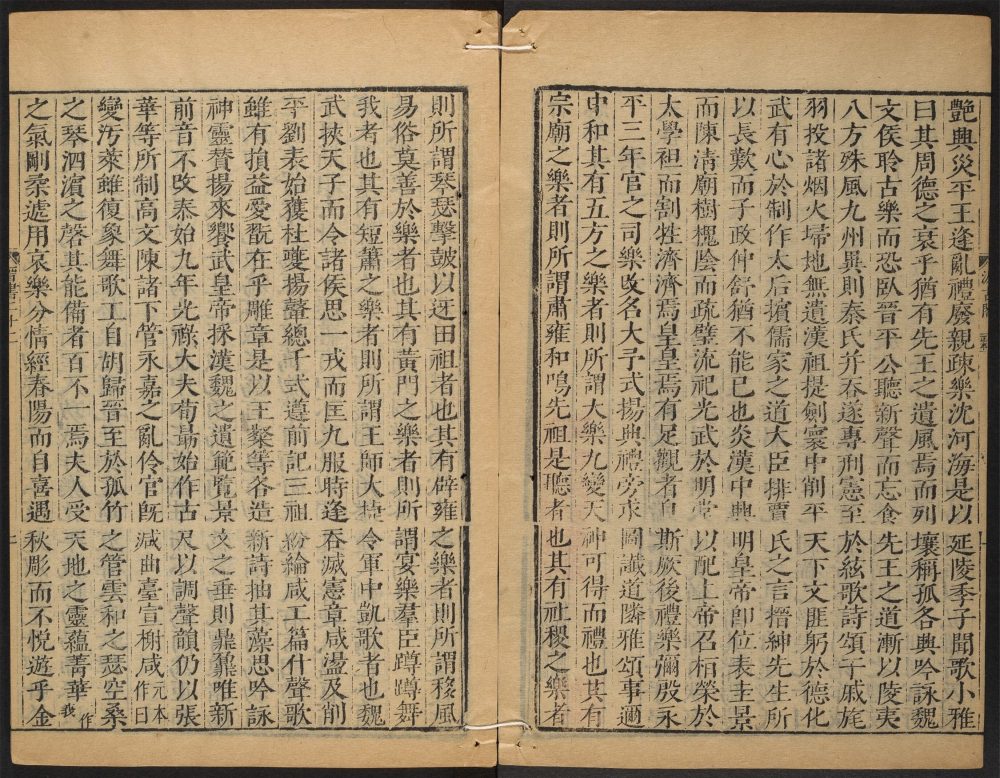 艷興災平王逢亂禮廢親疎樂沈河海是以延陵季子聞歌小雅
曰其周德之衰乎猶有先王之遺風焉而列壤稱孤各興吟詠魏
文侯聆古樂而恐臥晉平公聽新聲而忘食先王之道漸以陵夷
八方殊風九州異則秦氏并吞遂專刑憲至於絃歌詩頌干戚旄
羽投諸烟火埽地無遺漢祖提劍寰中削平天下文匪躬於德化
武有心於制作太后擯儒家之道大臣排賈氏之言搢紳先生所
以長歎而子政仲舒猶不能已也炎漢中興明皇帝即位表圭景
而陳清廟樹槐陰而疏璧流祀光武於明堂以配上帝召桓榮於
太學袒而割牲濟濟焉皇皇焉有足觀者自斯厥後禮樂彌殷永
平三年官之司樂改名大予式揚典禮旁求圖讖道隣雅頌事邇
中和其有五方之樂者則所謂大樂九變天神可得而禮也其有
宗廟之樂者則所謂肅雍和鳴先祖是聽者也其有社稷之樂者
則所謂琴瑟擊鼓以迓田祖者也其有辟雍之樂者則所謂移風
易俗莫善於樂者也其有黃門之樂者則所謂宴樂羣臣蹲蹲舞
我者也其有短簫之樂者則所謂王師大捷令軍中凱歌者也魏
武挾天子而令諸侯思一戎而匡九服時逢吞滅憲章咸盪及削
平劉表始獲杜夔揚聲總干式遵前記三祖紛綸咸工篇什聲歌
雖有損益愛翫在乎雕章是以王粲等各造新詩抽其藻思吟詠
神靈贊揚來饗武皇帝採漢魏之遺範覽景文之垂則鼎鼐唯新
前音不改泰始九年光祿大夫荀勗始作古尺以調聲韻仍以張
華等所制高文陳諸下管永嘉之亂伶官旣減曲臺宣榭咸元本作曰
變汚萊雖復象舞歌工自胡歸晉至於孤竹之管雲和之瑟空桑
之琴泗濱之磬其能備者百不一焉夫人受天地之靈蘊菁華作
之氣剛柔遞用哀樂分情經春陽而自喜遇秋彫而不悅遊乎金